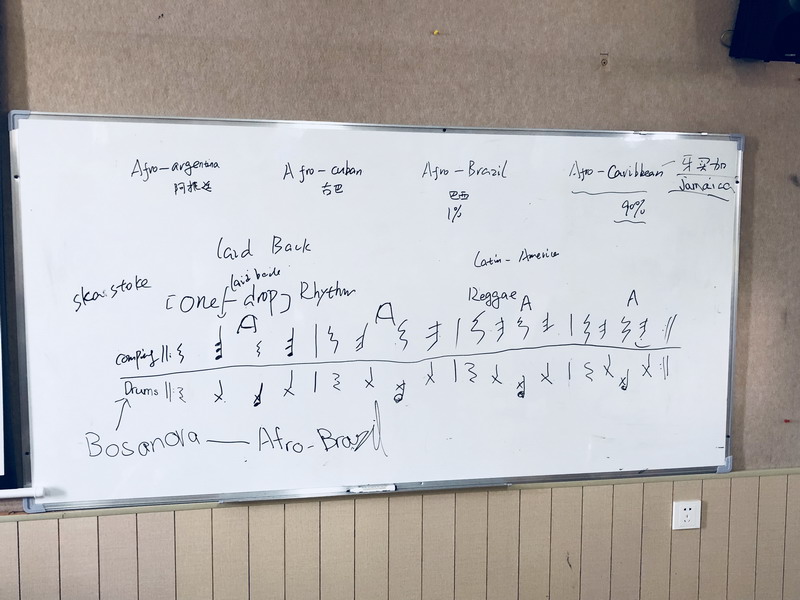 Afro-argentina
阿根廷
Afro-cuban
古巴
Afro-Brazil
巴西
1%
Afro-Caribbean - 牙买加
Jamaica
90%
Laid Back
Latin-America
ska stoke
laid back
[One-drop] Rhythm
Reggae
A A A A
comping
Drums
Bosanova — Afro-Brazil